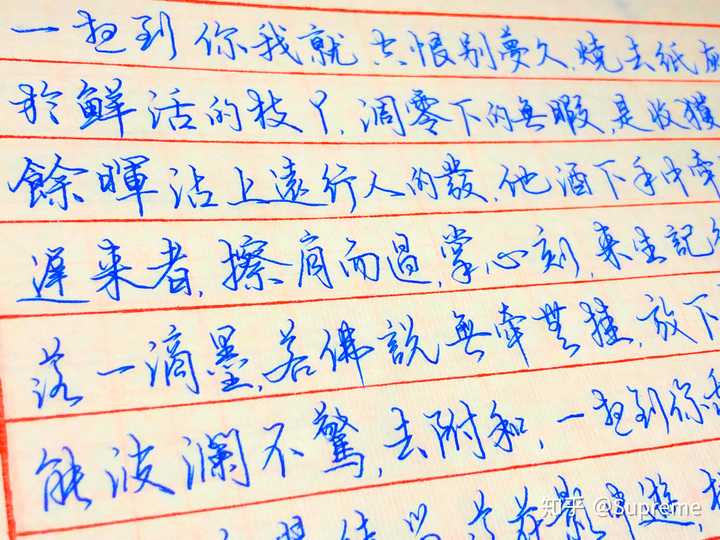 一想到你我就 共恨别夢久,燒去紙
於鮮活的枝丫,凋零下的無暇,是收獲
餘暉沾上遠行人的髮,他洒下手中牽
遲来者,擦肩而過,掌心刻,来生記
落一滴墨,若佛説無牽無掛,放下
能波瀾不驚,去附和,一想到你我
知乎 @Supreme